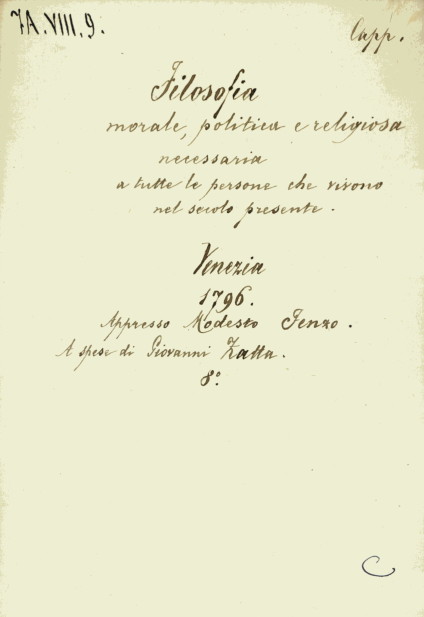 7A.VIII.9.
Capp.
Filosofia
morale, politica e religiosa
necessaria
a tutte le persone che vivono
nel secolo presente.
Venezia
1796.
Appresso Modesto Fenzo.
A spese di Giovanni Zatta.
8.º
C